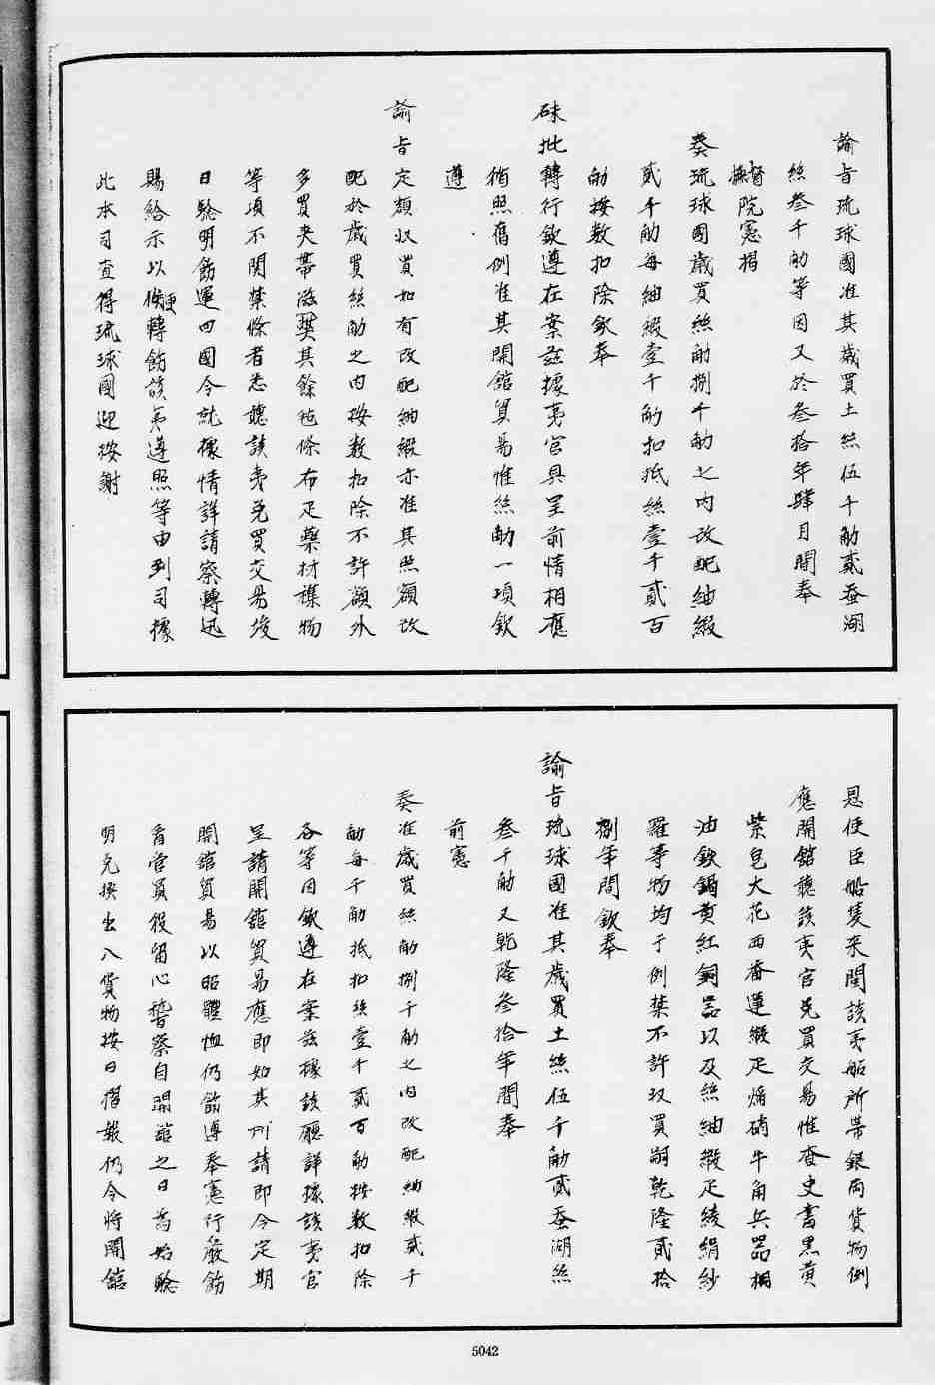 諭旨琉球國准其歲買土絲伍千觔貳蚕湖
絲叁千觔等因又於叁拾年肆月間奉
督撫院憲揭
奏琉球國歲買絲觔捌千觔之內改配紬緞
貳千觔每紬緞壹千觔扣抵絲壹千貳百
觔按数扣除欽奉
硃批轉行欽遵在案茲據夷官具呈前情相應
循照舊例准其開舘貿易惟絲觔一項欽
遵
諭旨定額収買如有改配紬緞亦准其照額改
配於歲買絲觔之內按数扣除不許額外
多買夾帶滋弊其餘毡條布疋藥材襍物
等項不関禁條者悉聽該夷兌買交易竣
日驗明飭運回國今就據情詳請察轉迅
賜給示以便轉飭該夷遵照等由到司據
此本司查得琉球國迎接謝
恩使臣船隻來閩該夷船所带銀両貨物例
應開舘聽該夷官兌買交易惟查史書黑黄
紫皂大花西番蓮緞疋焔硝牛角兵器桐
油鉄鍋黄紅銅器以及絲紬緞疋綾絹紗
羅等物均于例禁不許収買嗣乾隆貳拾
捌年間欽奉
諭旨琉球國准其歲買土絲伍千觔貳蚕湖絲
叁千觔又乾隆叁拾年間奉
前憲
奏准歲買絲觔捌千觔之內改配紬緞貳千
觔每千觔抵扣絲壹千貳百觔按数扣除
各等因欽遵在案茲據該廳詳據該夷官
呈請開舘貿易應即如其所請即令定期
開舘貿易以昭體恤仍飭遵奉憲行嚴飭
看官員役留心嵆察自開舘之日為始驗
明兌換出入貨物按日摺報仍令將開舘
5042